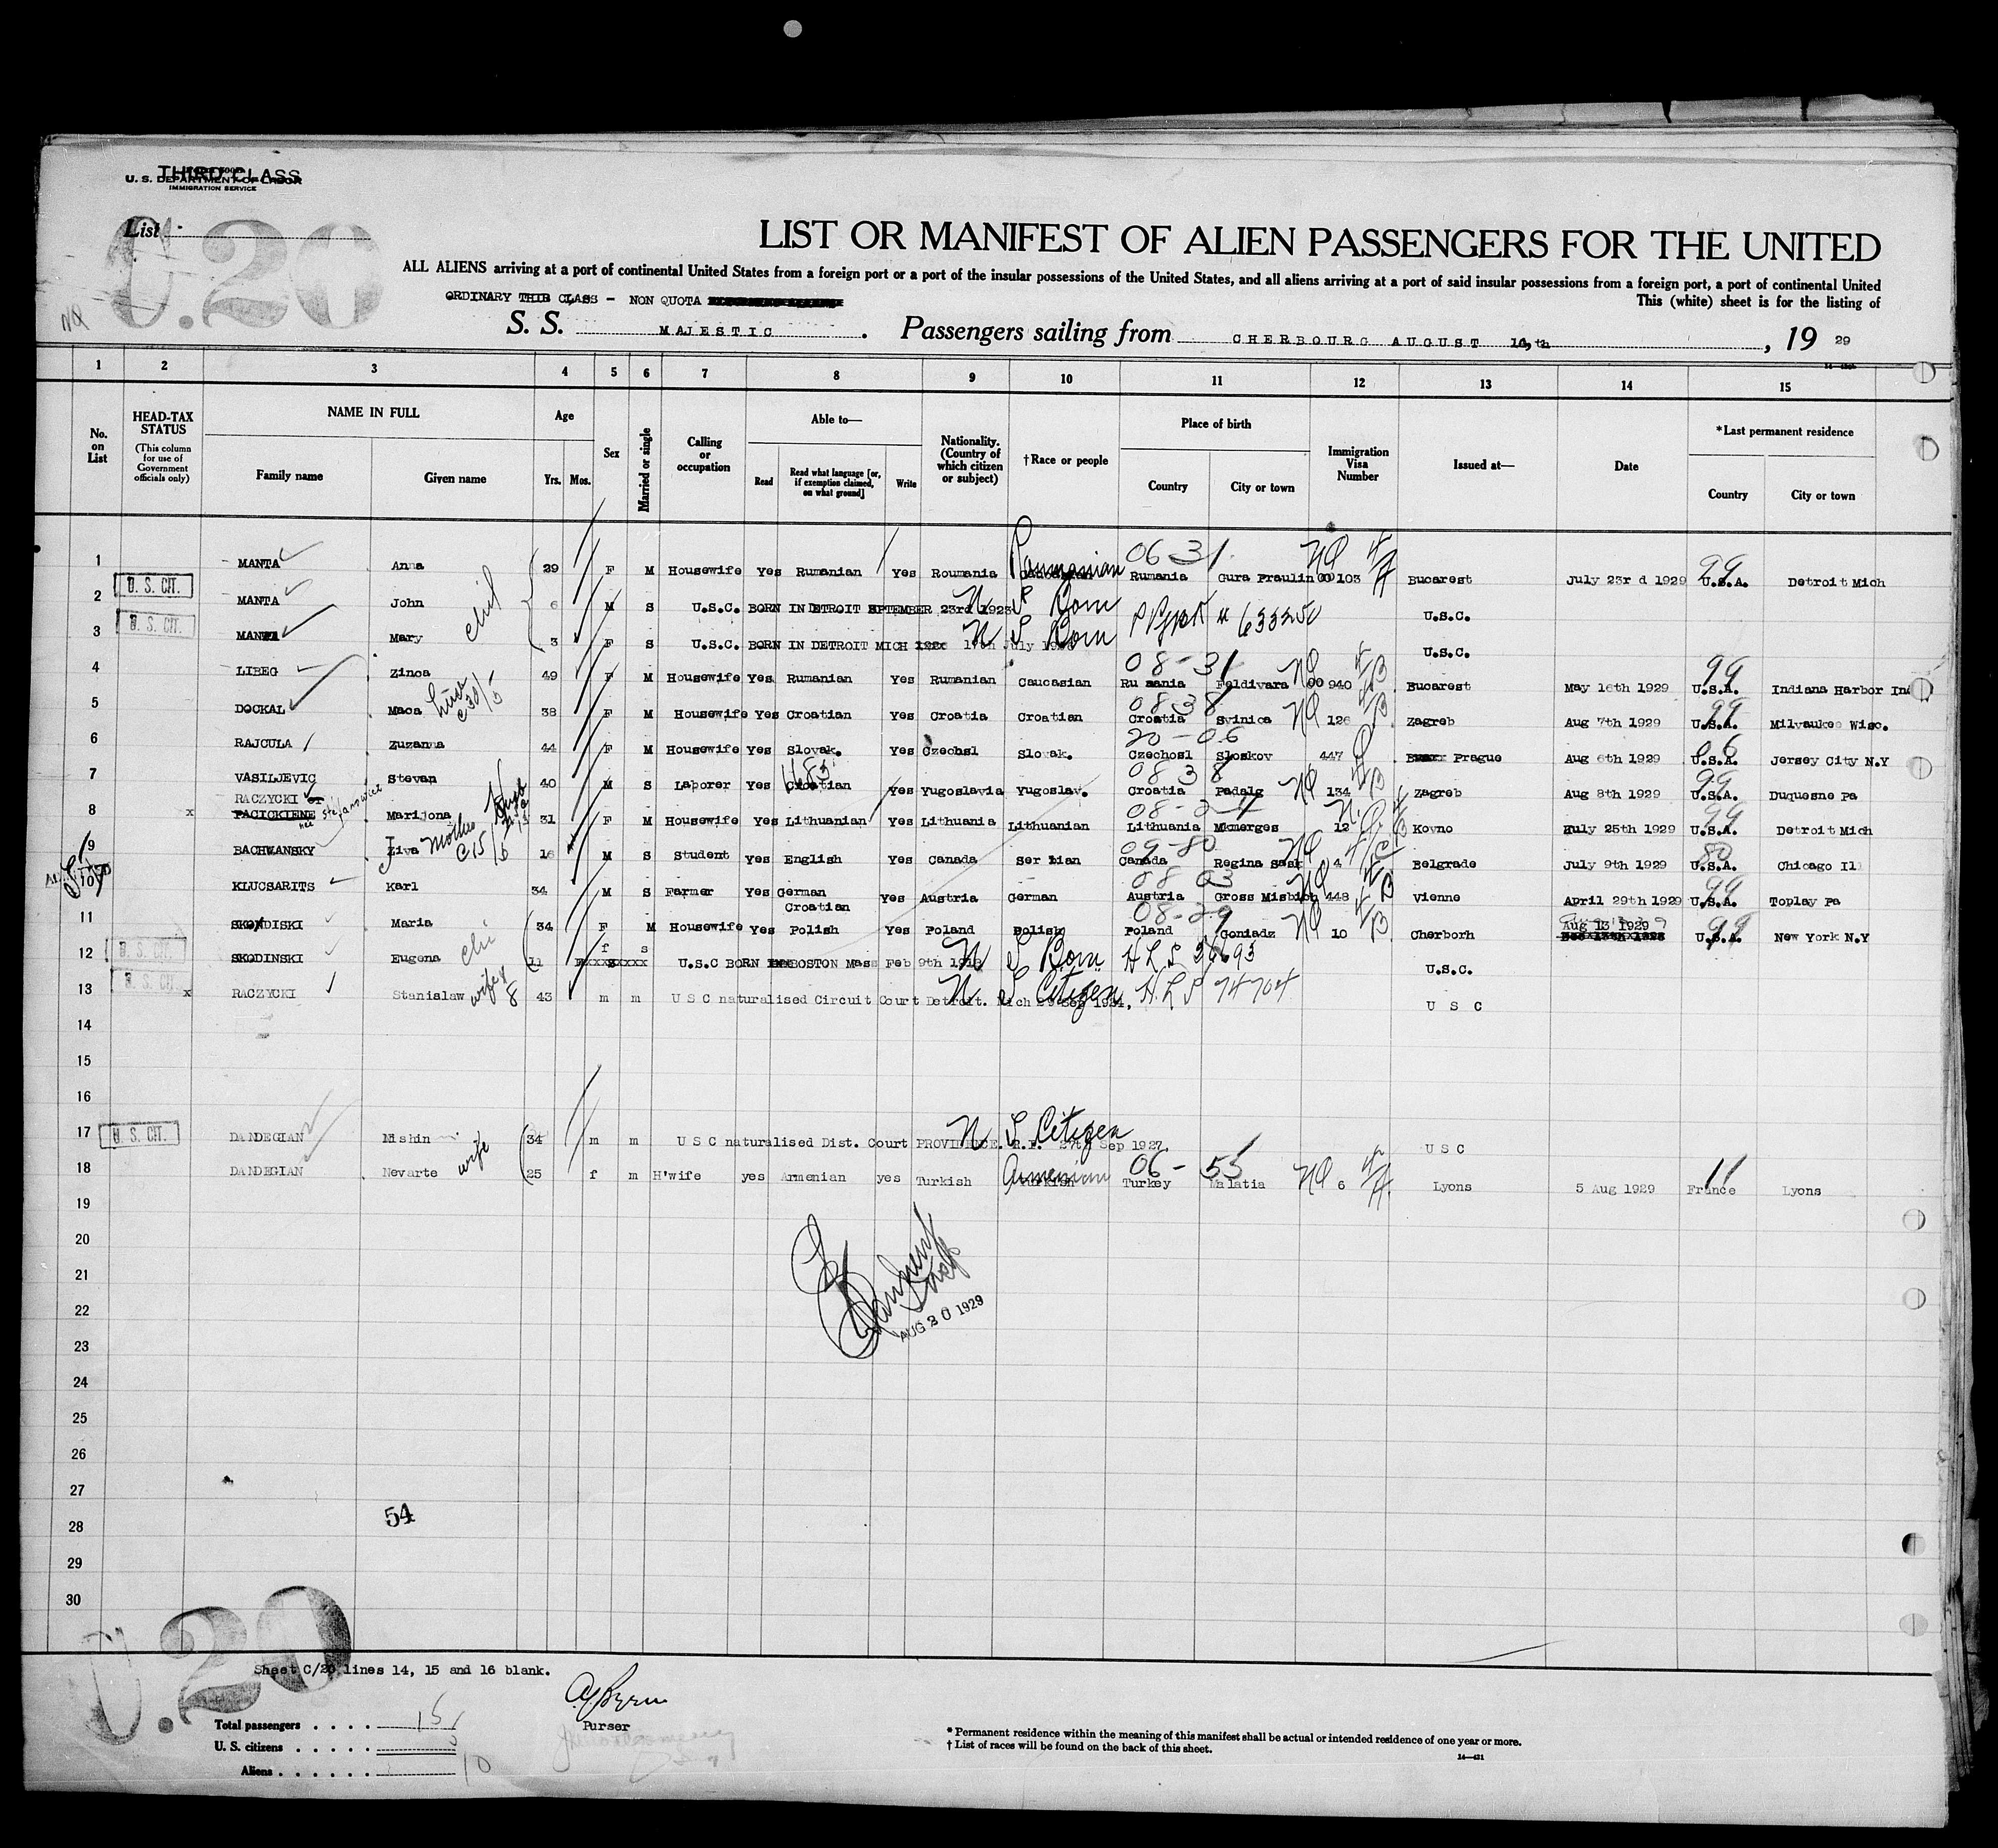 THIRD CLASS
U. S. DEPARTMENT OF LABOR
IMMIGRATION SERVICE
List
C.20
LIST OR MANIFEST OF ALIEN PASSENGERS FOR THE UNITED
ALL ALIENS arriving at a port of continental United States from a foreign port or a port of the insular possessions of the United States, and all aliens arriving at a port of said insular possessions from a foreign port, a port of continental United
ORDINARY THIB CLASS - NON QUOTA
This (white) sheet is for the listing of
S. S. MAJESTIC. Passengers sailing from CHERBOURG AUGUST 14,th, 19 29
1 2 3 4 5 6 7 8 9 10 11 12 13 14 15
No. on List
HEAD-TAX STATUS
(This column for use of Government officials only)
NAME IN FULL
Family name Given name
Age
Yrs. Mos.
Sex
Married or single
Calling or occupation
Able to—
Read Read what language [or, if exemption claimed, on what ground] Write
Nationality. (Country of which citizen or subject)
†Race or people
Place of birth
Country City or town
Immigration Visa Number
Issued at—
Date
*Last permanent residence
Country City or town
1 MANTA Anna 29 F M Housewife Yes Rumanian Yes Roumania Rumanian 06 31 Rumania Gura Praulin 00103 NQ 4/A Bucarest July 23rd 1929 99 U.S.A. Detroit Mich
U. S. CIT.
2 MANTA John 6 M S U.S.C. BORN IN DTROIT SPTEMBER 23rd 1923 U S Born U.S.C.
U. S. CIT.
3 MANTA Mary 3 F S U.S.C. BORN IN DETROIT MICH July U S Born PPort # 633250 U.S.C.
4 LIBEG Zinca 49 F M Housewife Yes Rumanian Yes Rumanian Caucasian 08-31 Ru mania Feldivara 00 940 NQ 4/B Bucarest May 16th 1929 99 U.S.A. Indiana Harbor Ind
5 DOCKAL Maca 38 F M Housewife Yes Croatian Yes Croatia Croatian 08 38 Croatia Svinica NQ 126 4/B Zagreb Aug 7th 1929 99 U.S.A. Milvaukee Wisc.
6 RAJCULA Zuzanna 44 F M Housewife Yes Slovak. Yes Czechsl Slovak. 20-06 Czechosl Sloskov 447 Prague Aug 6th 1929 U.S.A. Jersey City N.Y
7 VASILJEVIC Stevan 40 M S Laborer Yes Croatian Yes Yugoslavia Yugoslav. 08 38 Croatia Padalg NQ 134 4/B Zagreb Aug 8th 1929 99 U.S.A. Duquesne Pa
RACZYCKI or
8 x PACICKIENE Marijona 31 F M Housewife Yes Lithuanian Yes Lithuania Lithuanian Lithuania Mcmerges 12 Kovno July 25th 1929 99 U.S.A. Detroit Mich
9 BACHWANSKY Ziva Mother 16 M S Student Yes English Yes Canada Ser bian 09-80 Canada Regina Sask NQ 4 4/C Belgrade July 9th 1929 80 U.S.A. Chicago Ill
10 KLUCSARITS Karl 34 M S Farmer Yes German Croatian Yes Austria German 08 03 Austria Gross Misbich 448 NQ 4/B Vienne April 29th 1929 99 U.S.A. Toplay Pa
11 SKODISKI Maria 34 F M Housewife Yes Polish Yes Poland Polish 08-29 Poland Goniadz NQ 10 4/B Cherborh Aug 13 1929 99 U.S.A. New York N.Y
U. S. CIT.
12 SKODINSKI Eugena 11 f s U.S.C BORN BOSTON Mass Feb 9th U S Born HLS 36693 U.S.C.
U. S. CIT.
13 x RACZYCKI Stanislaw wife 8 43 m m U S C naturalised Circuit Court Detroit. Mich 29 Sep 1924. U S Citizen H.L.S 74704 U S C
14
15
16
17 U. S. CIT. DANDEGIAN Nishin 34 m m U S C naturalised Dist. Court PROVIDENCE. R.I. 27th Sep 1927. U S Citizen U S C
18 DANDEGIAN Nevarte wife 25 f m H'wife yes Armenian yes Turkish Armenian 06-55 Turkey Malatia NQ 6 4/A Lyons 5 Aug 1929 11 France Lyons
19
20
21
22
AUG 20 1929
23
24
25
26
27
28
54
29
30
C.20
Sheet C/20 lines 14, 15 and 16 blank.
Purser
Total passengers . . . . 15
U. S. citizens . . . . . 5
Aliens . . . . . . 10
* Permanent residence within the meaning of this manifest shall be actual or intended residence of one year or more.
† List of races will be found on the back of this sheet.
14—421